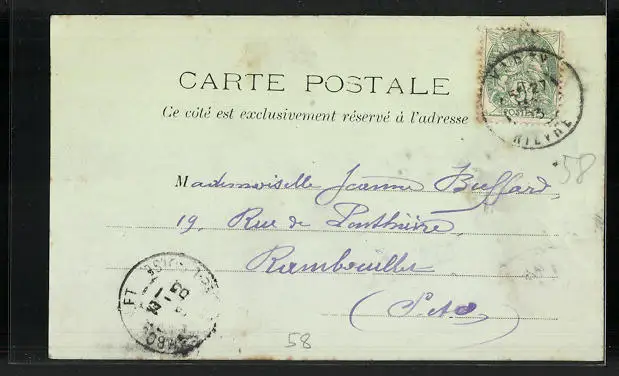 CARTE POSTALE
Ce côté est exclusivement réservé à l'adresse
POSTES
NIÈVRE
58
Mademoiselle Jeanne Buffard
19, Rue de Penthièvre,
Rambouillet
(S et O)
58